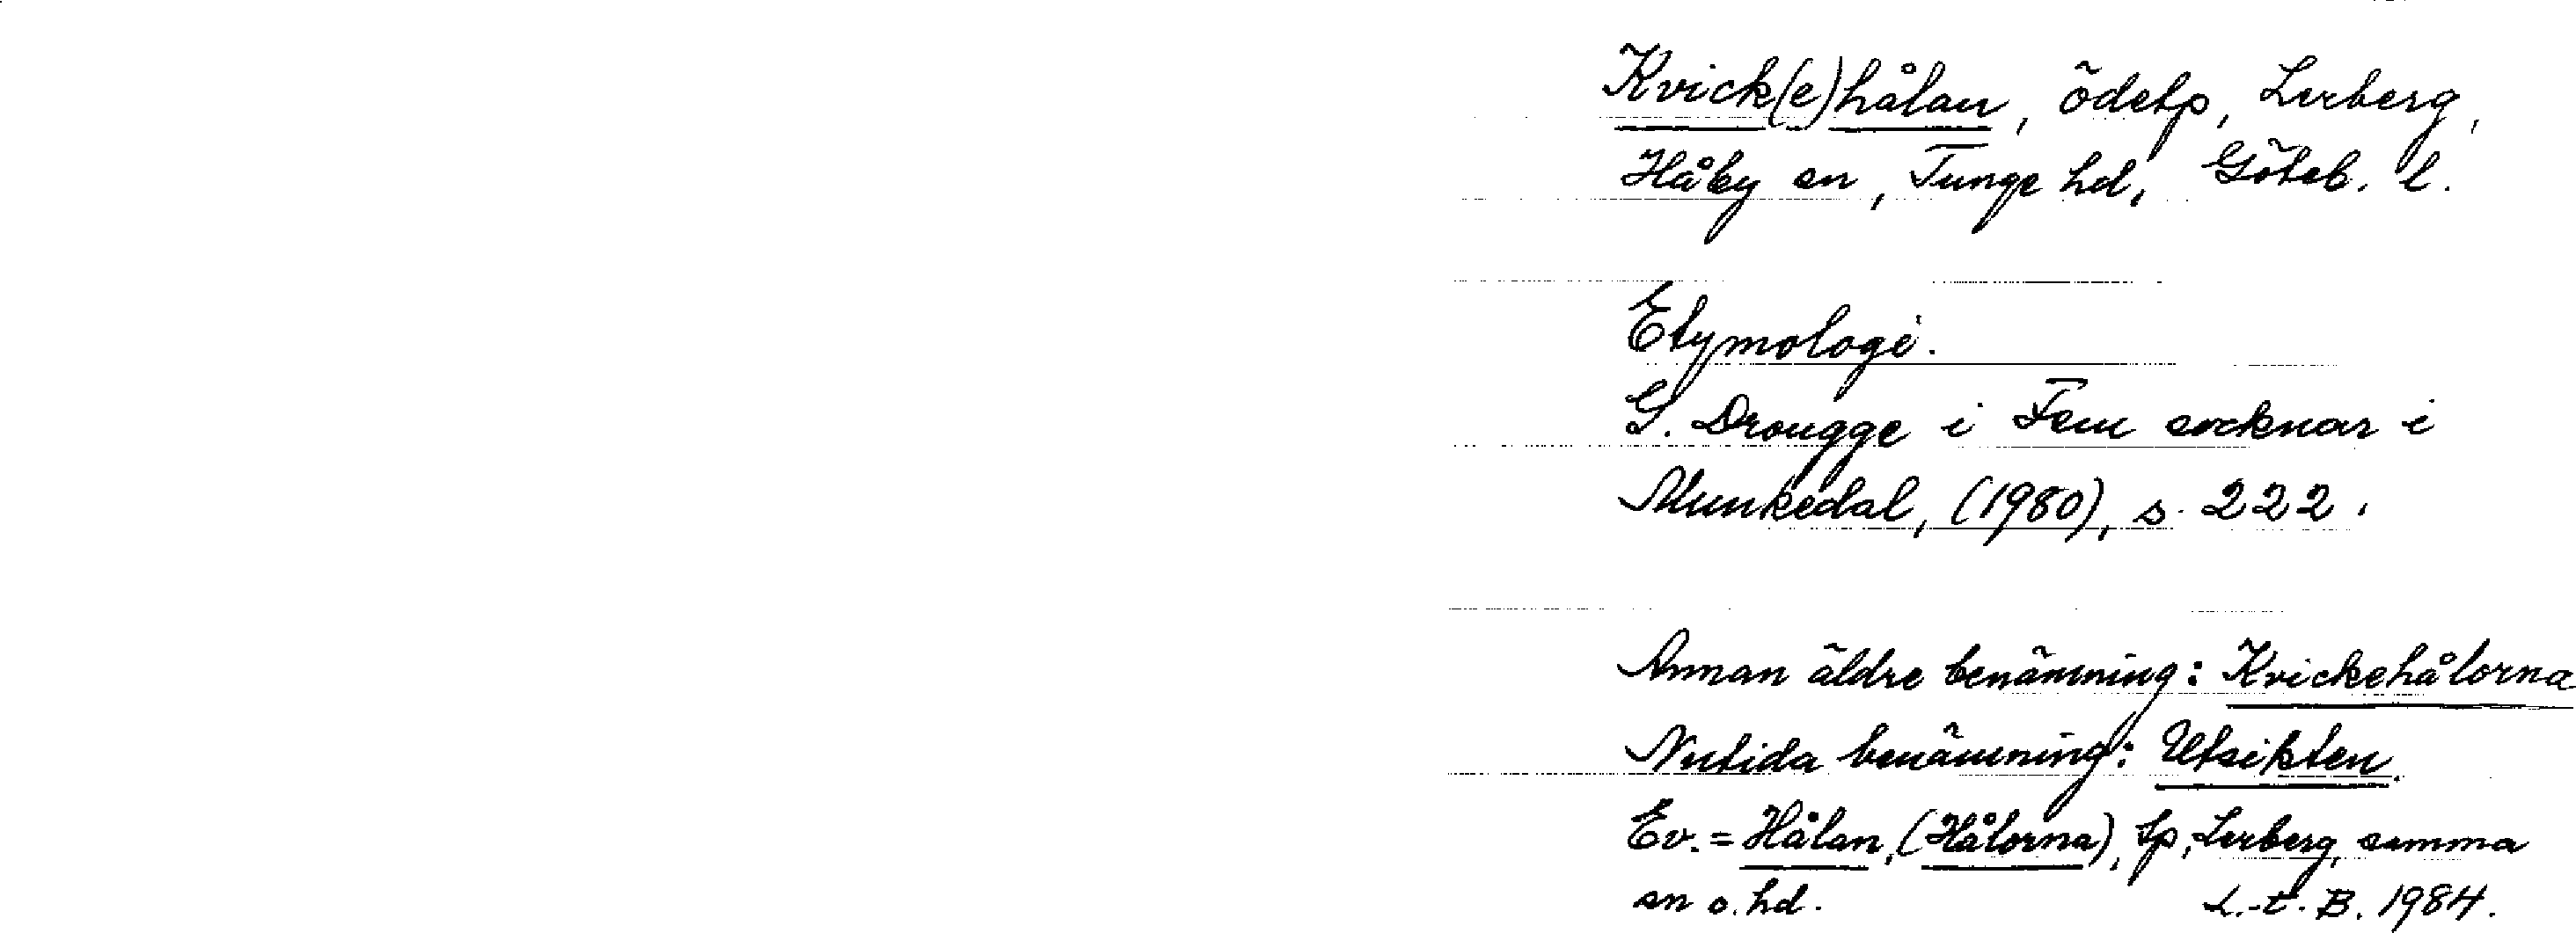 Kvick(e)hålan, ödetp, Lerberg,
Håby sn, Tunge hd, Göteb. l.
Etymologi.
G. Drougge i Fem socknar i
Munkedal, (1980), s. 222.
Annan äldre benämning: Kvickehålorna
Nutida benämning: Utsikten.
Ev. = Hålan, (Hålorna), tp, Lerberg, samma
sn o. hd. L.-t. B. 1984.